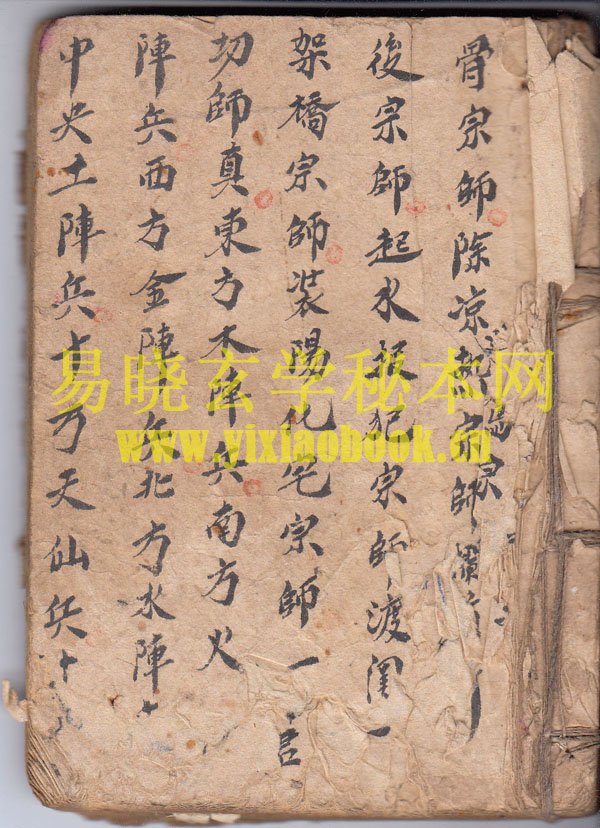 骨宗師除凉熱宗師
後宗師起水根犯宗師渡
架橋宗師裝陽化宅宗師一言
切師真東方木陣兵南方火
陣兵西方金陣兵北方水陣
中央土陣兵十万天仙兵十
易晓玄学秘本网
www.yixiaobook.cn